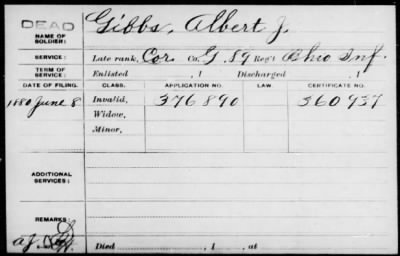 DEAD
Gibbs, Albert J.
NAME OF SOLDIER:
SERVICE: Late rank, Cor. Co. G, 89 Reg't Ohio Inf.
TERM OF SERVICE: Enlisted , 1 Discharged , 1
DATE OF FILING. CLASS. APPLICATION NO. LAW. CERTIFICATE NO.
1880 June 8 Invalid, 376890 360937
Widow,
Minor,
ADDITIONAL SERVICES:
REMARKS:
Died , 1 , at